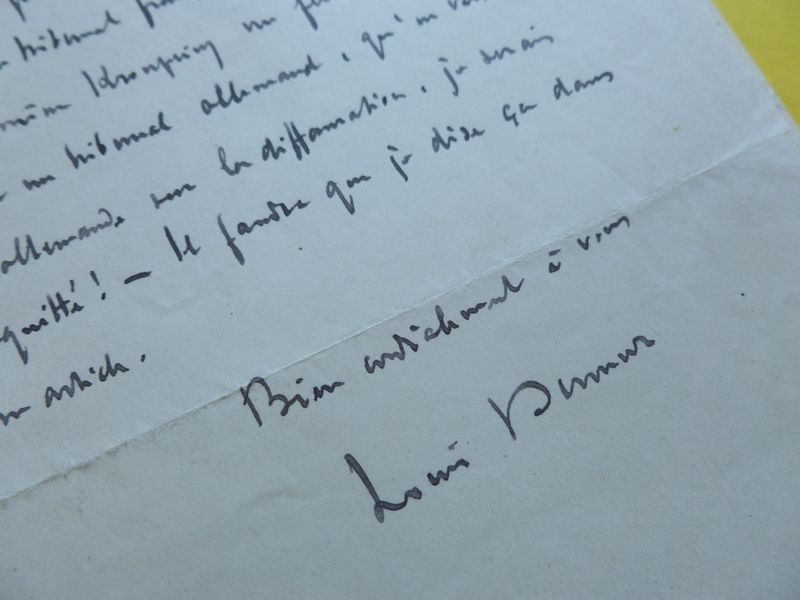 tribunal
Kronprinz un
un tribunal allemand, qu'en
allemande sur la diffamation, je serais
quitté! — Il faudra que je dise ça dans
un article.
Bien cordialement à vous
Louis Dumur